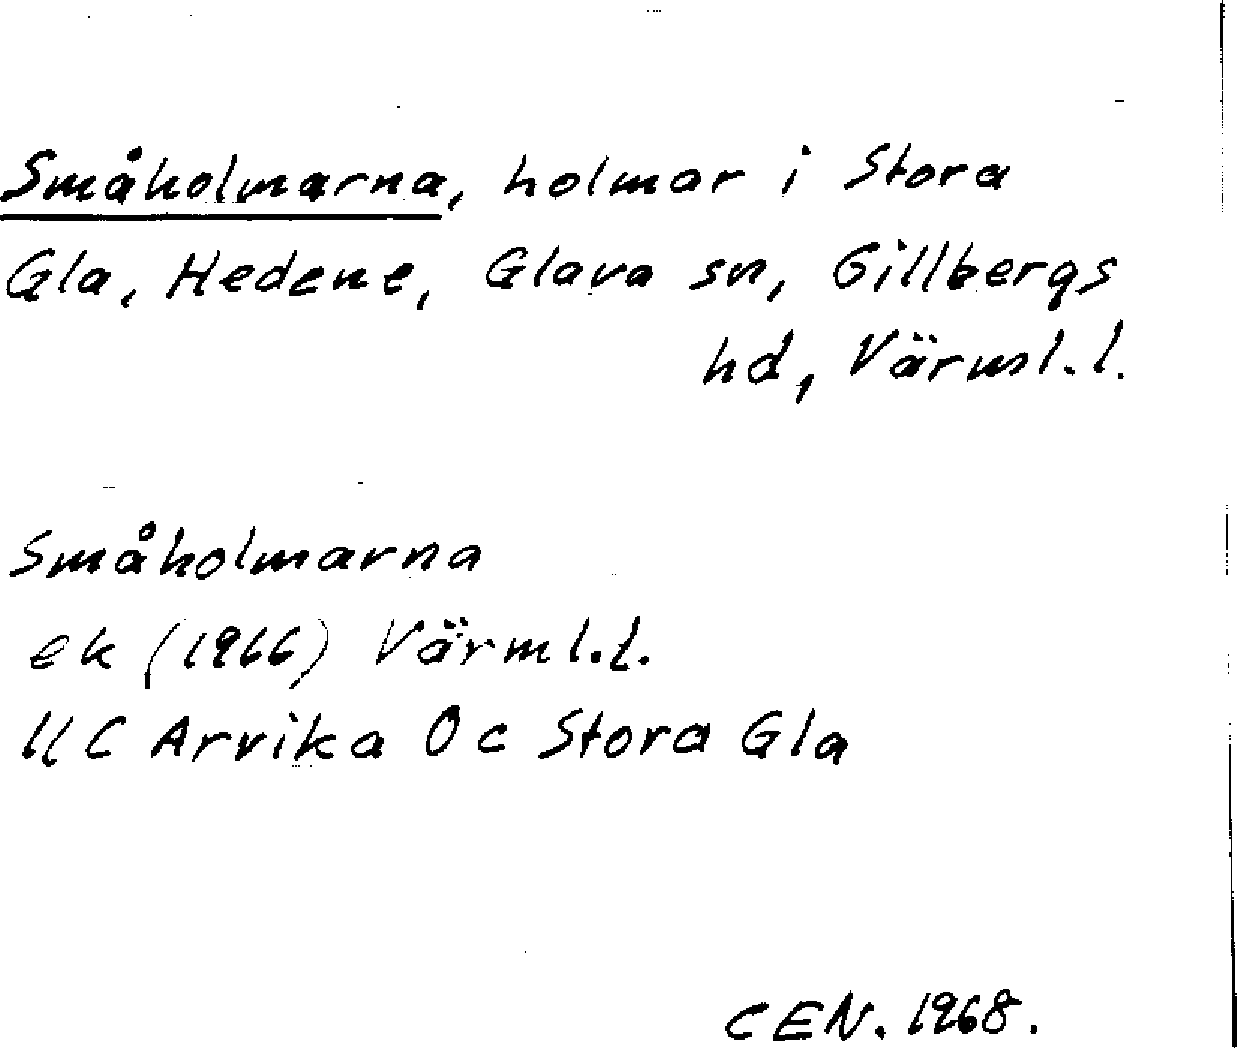 Småholmarna, holmar i Stora
Gla, Hedene, Glava sn, Gillbergs
hd, Värml.l.
Småholmarna
ek (1966) Värml.l.
11C Arvika Öc Stora Gla
CEN. 1968.